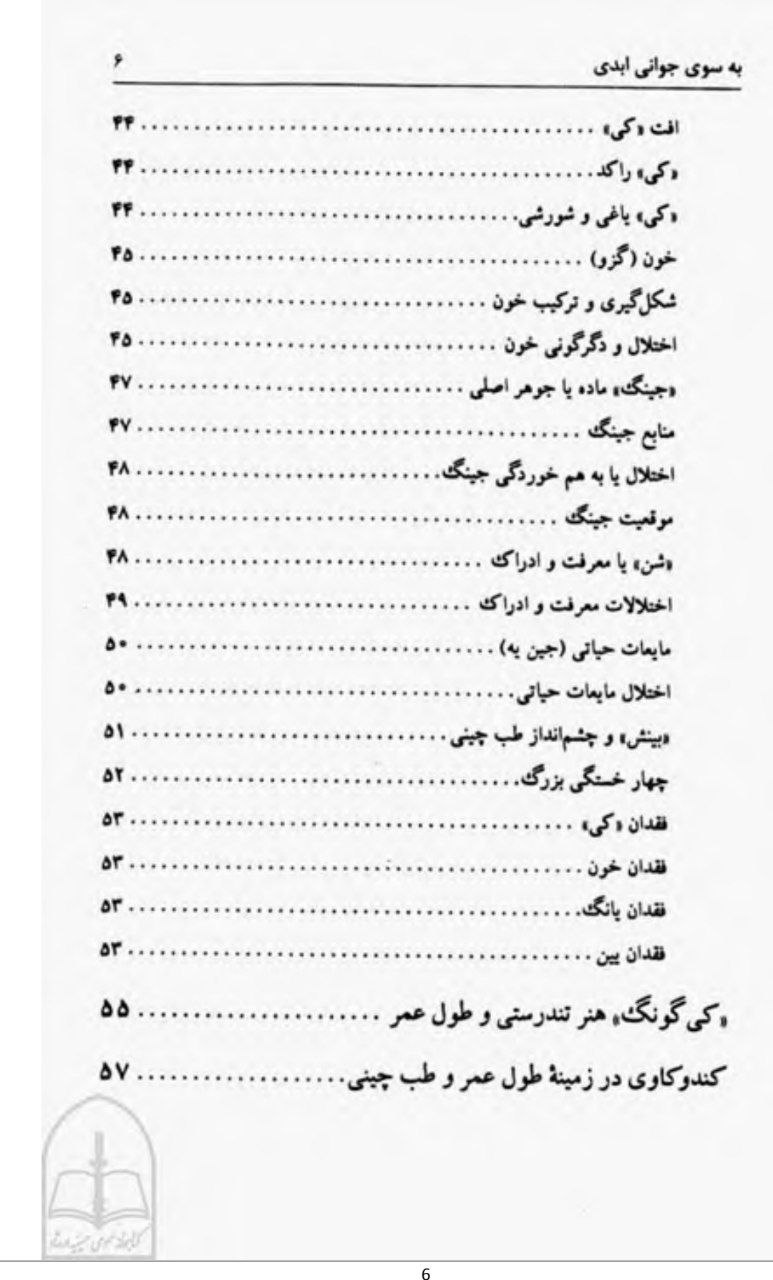 به سوی جوانی ابدی ۶
افت «کی» ........................................ ۴۴
«کی» راکد ........................................ ۴۴
«کی» یاغی و شورشی ................................ ۴۴
خون (گزو) ........................................ ۴۵
شکل‌گیری و ترکیب خون ............................. ۴۵
اختلال و دگرگونی خون ............................. ۴۵
«جینگ» ماده یا جوهر اصلی ......................... ۴۷
منابع جینگ ....................................... ۴۷
اختلال یا به هم خوردگی جینگ ...................... ۴۸
موقعیت جینگ ...................................... ۴۸
«شن» یا معرفت و ادراک ............................ ۴۸
اختلالات معرفت و ادراک ........................... ۴۹
مایعات حیاتی (جین یه) ............................ ۵۰
اختلال مایعات حیاتی .............................. ۵۰
«بینش» و چشم‌انداز طب چینی ....................... ۵۱
چهار خستگی بزرگ .................................. ۵۲
فقدان «کی» ....................................... ۵۳
فقدان خون ........................................ ۵۳
فقدان یانگ ....................................... ۵۳
فقدان یین ........................................ ۵۳
«کی گونگ» هنر تندرستی و طول عمر .................. ۵۵
کندوکاوی در زمینهٔ طول عمر و طب چینی ............. ۵۷
6